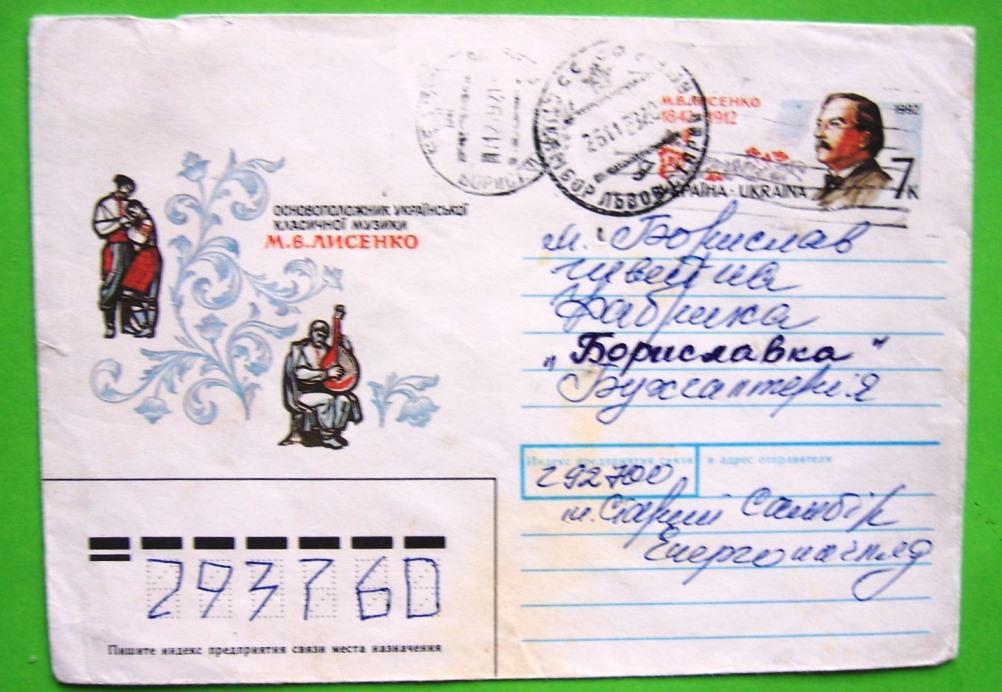 М.В.ЛИСЕНКО
1842-1912
1992
7к
УКРАЇНА · UKRAINA
ОСНОВОПОЛОЖНИК УКРАЇНСЬКОЇ
КЛАСИЧНОЇ МУЗИКИ
М.В.ЛИСЕНКО
м. Борислав
швейна
фабрика
„Бориславка"
Бухгалтерія
Индекс предприятия связи и адрес отправителя
292700
м. Старий Самбір
293760
Пишите индекс предприятия связи места назначения